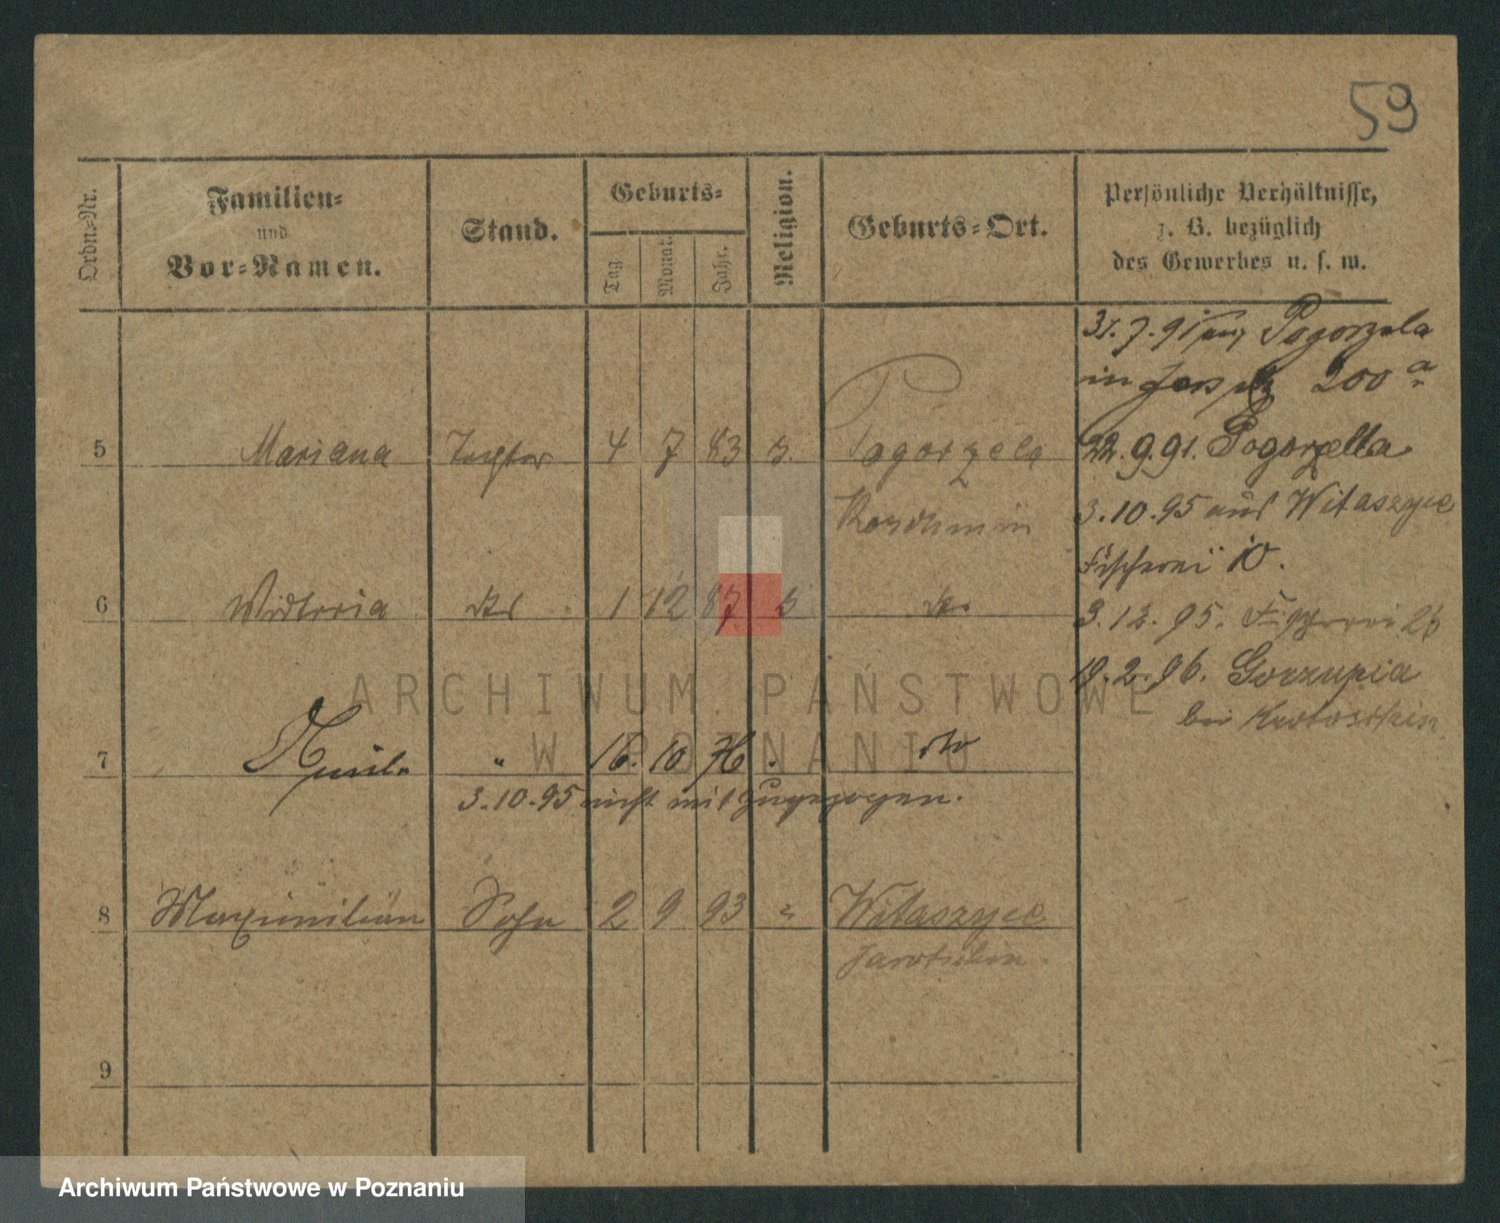 59
Ordn.-Nr.
Familien-
und
Vor-Namen.
Stand.
Geburts-
Tag
Monat.
Jahr.
Religion.
Geburts-Ort.
Persönliche Verhältnisse,
z. B. bezüglich
des Gewerbes u. s. w.
31.7.91 Pogorzela
in 200
5 Mariana Tochter 4 7 83 Pogorzela
22.9.91. Pogorzella
Koschmin
3.10.95 aus Witaszyce
Fischerei 10.
6 Widtoria 1 12 87 do.
3.12.95. Fischerei 26
19.2.96. Gorzupia
bei Krotoschin
7 " 16. 10 76 do
3.10.95 nicht mitzugezogen.
8 Maximilian Sohn 2 9 93 " Witaszyce
Jarotschin.
9
ARCHIWUM PAŃSTWOWE
W POZNANIU
Archiwum Państwowe w Poznaniu